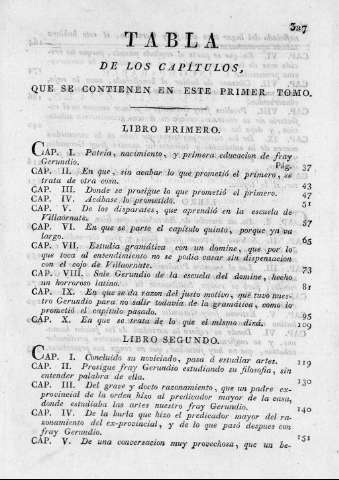 327
TABLA
DE LOS CAPÍTULOS,
QUE SE CONTIENEN EN ESTE PRIMER TOMO.
LIBRO PRIMERO.
CAP. I. Patria, nacimiento, y primera educacion de fray
Gerundio. Pág. 37
CAP. II. En que, sin acabar lo que prometió el primero, se
trata de otra cosa. 43
CAP. III. Donde se prosigue lo que prometió el primero. 47
CAP. IV. Acábase lo prometido. 51
CAP. V. De los disparates, que aprendió en la escuela de
Villaornate. 57
CAP. VI. En que se parte el capítulo quinto, porque ya va
largo. 65
CAP. VII. Estudia gramática con un domine, que por lo
que toca al entendimiento no se podia casar sin dispensacion
con el cojo de Villaornate. 73
CAP. VIII. Sale Gerundio de la escuela del domine, hecho
un horroroso latino. 81
CAP. IX. En que se da razon del justo motivo, que tuvo nuestro
Gerundio para no salir todavía de la gramática, como lo
prometió el capítulo pasado. 95
CAP. X. En que se trata de lo que el mismo dirá. 109
LIBRO SEGUNDO.
CAP. I. Concluido su noviciado, pasa á estudiar artes. 119
CAP. II. Prosigue fray Gerundio estudiando su filosofía, sin
entender palabra de ella. 130
CAP. III. Del grave y docto razonamiento, que un padre ex-
provincial de la orden hizo al predicador mayor de la casa,
donde estudiaba las artes nuestro fray Gerundio. 140
CAP. IV. De la burla que hizo el predicador mayor del ra-
zonamiento del ex-provincial, y de lo que pasó despues con
fray Gerundio. 151
CAP. V. De una conversacion muy provechosa, que un be-